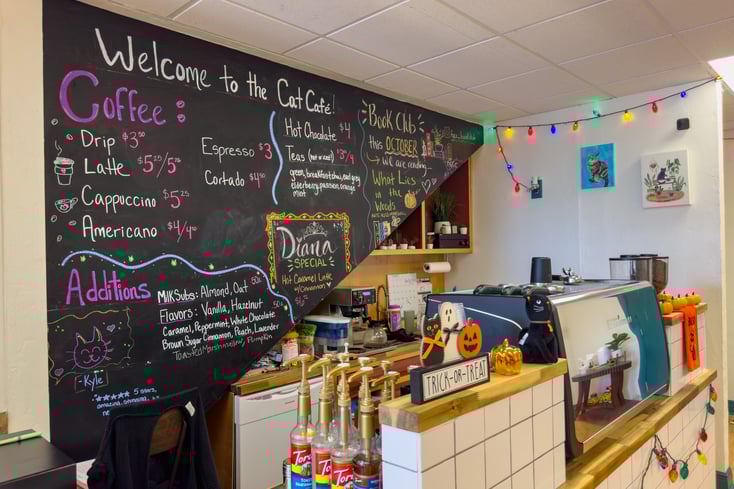 Welcome to the Cat Café!
Coffee:
Drip $3.50
Latte $5.25/5.75
Cappuccino $5.25
Americano $4/4
Espresso $3
Cortado $4.50
Hot Chocolate $4
Teas (hot or iced) $3/4
green, breakfast chai, earl grey
elderberry, passion, orange
mint
Book Club
this OCTOBER
we are reading...
What Lies
in the
Woods
Diana
SPECIAL
Hot Caramel Latte
w/Cinnamon
$6.25
Additions
Milk Subs: Almond, Oat 50¢
Flavors: Vanilla, Hazelnut 50¢
Caramel, Peppermint, White Chocolate
Brown Sugar Cinnamon, Peach, Lavender
Toasted Marshmallow, Pumpkin
-Kyle
5 stars
TRICK-OR-TREAT